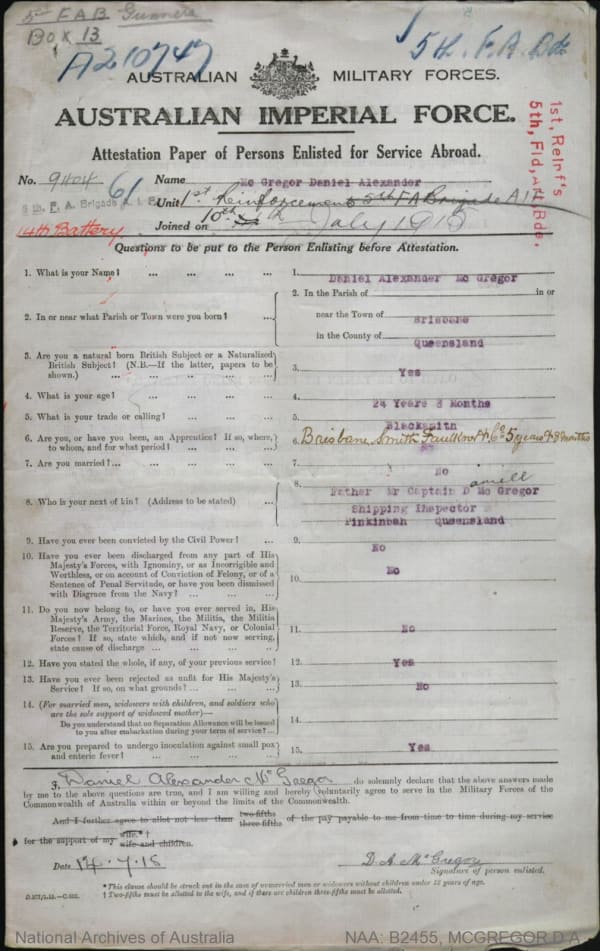 5th F A B Gunners
Box 13
A210747
5th. F. A. Bde
AUSTRALIAN MILITARY FORCES.
AUSTRALIAN IMPERIAL FORCE.
1st, Reinf's
5th, Fld, Art, Bde,
Attestation Paper of Persons Enlisted for Service Abroad.
No. 9404 Name Mc Gregor Daniel Alexander
61
5th F. A. Brigade A. I. F. Unit 1st Reinforcements 5th FA Brigade AIF
14th Battery Joined on 10th July 1915
Questions to be put to the Person Enlisting before Attestation.
1. What is your Name? ... ... ... ... 1. Daniel Alexander Mc Gregor
2. In or near what Parish or Town were you born? ... 2. In the Parish of in or
near the Town of Brisbane
in the County of Queensland
3. Are you a natural born British Subject or a Naturalized
British Subject? (N.B.—If the latter, papers to be
shown.) ... ... ... ... ... 3. Yes
4. What is your age? ... ... ... ... 4. 24 Years 8 Months
5. What is your trade or calling? ... ... ... 5. Blacksmith
6. Are you, or have you been, an Apprentice? If so, where,
to whom, and for what period? ... ... ... 6. Brisbane, Smith Faulkner & Co 5 years & 8 months
7. Are you married? ... ... ... ... 7. No
8. Who is your next of kin? (Address to be stated) ... 8. Father Mr Captain D Mc Gregor
Shipping Inspector
Pinkinbah Queensland
9. Have you ever been convicted by the Civil Power? ... 9. No
10. Have you ever been discharged from any part of His
Majesty's Forces, with Ignominy, or as Incorrigible and
Worthless, or on account of Conviction of Felony, or of a
Sentence of Penal Servitude, or have you been dismissed
with Disgrace from the Navy? ... ... ... 10. No
11. Do you now belong to, or have you ever served in, His
Majesty's Army, the Marines, the Militia, the Militia
Reserve, the Territorial Force, Royal Navy, or Colonial
Forces? If so, state which, and if not now serving,
state cause of discharge ... ... ... ... 11. No
12. Have you stated the whole, if any, of your previous service? 12. Yes
13. Have you ever been rejected as unfit for His Majesty's
Service? If so, on what grounds? ... ... ... 13. No
14. (For married men, widowers with children, and soldiers who
are the sole support of widowed mother)—
Do you understand that no Separation Allowance will be issued
to you after embarkation during your term of service? ... 14.
15. Are you prepared to undergo inoculation against small pox
and enteric fever? ... ... ... ... 15. Yes
I, Daniel Alexander McGregor do solemnly declare that the above answers made
by me to the above questions are true, and I am willing and hereby voluntarily agree to serve in the Military Forces of the
Commonwealth of Australia within or beyond the limits of the Commonwealth.
And I further agree to allot not less than two-fifths three-fifths of the pay payable to me from time to time during my service
for the support of my wife.* † wife and children.
Date 14.7.15 D. A. McGregor
Signature of person enlisted.
* This clause should be struck out in the case of unmarried men or widowers without children under 18 years of age.
† Two-fifths must be allotted to the wife, and if there are children three-fifths must be allotted.
National Archives of Australia NAA: B2455, MCGREGOR D A